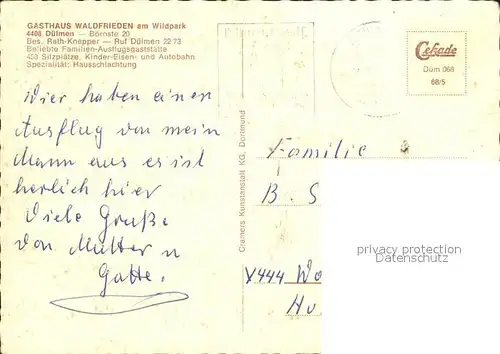 GASTHAUS WALDFRIEDEN am Wildpark
4408 Dülmen — Börnste 20
Bes. Rath-Knepper — Ruf Dülmen 22 73
Beliebte Familien-Ausflugsgaststätte
450 Sitzplätze, Kinder-Eisen- und Autobahn
Spezialität: Hausschlachtung
Cekade
Düm 068
68/5
Wier haben einen
Ausflug von mein
Mann aus es ist
herlich hier
Viele Gruße
von Mutter u
Gatte.
Cramers Kunstanstalt KG, Dortmund
Familie
B. S
4444 Wo
privacy protection
Datenschutz